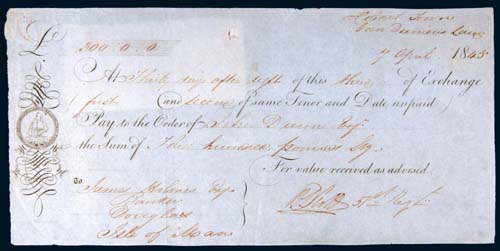 Hobart Town
Van Diemens Land
£ 300.0.0 7 April 1845
At Thirty days after sight of this third of Exchange
first (and second of same Tenor and Date unpaid
Pay to the Order of John Dunn Esq.
the Sum of hundred pounds Stg.
For value received as advised.
To
James Holmes Esq.
Banker
Douglas
Isle of Man
51st Regt.